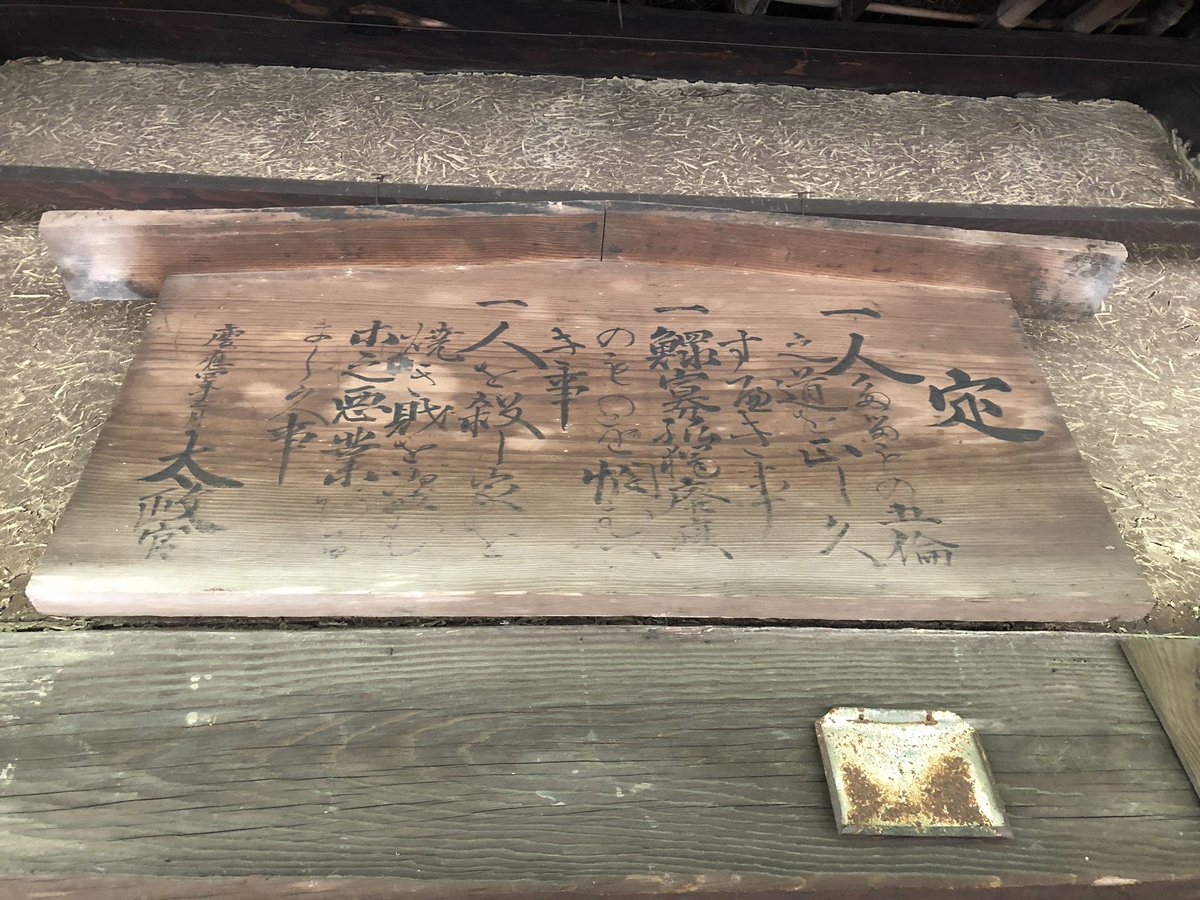 定
一 人たるもの五倫
之道を正しく
すへき事
一 鰥寡孤獨癈疾
のものを憫むへ
き事
一 人を殺し家を
焼き財を盗む
等之悪業ある
ましく事
慶應四年三月
太政官